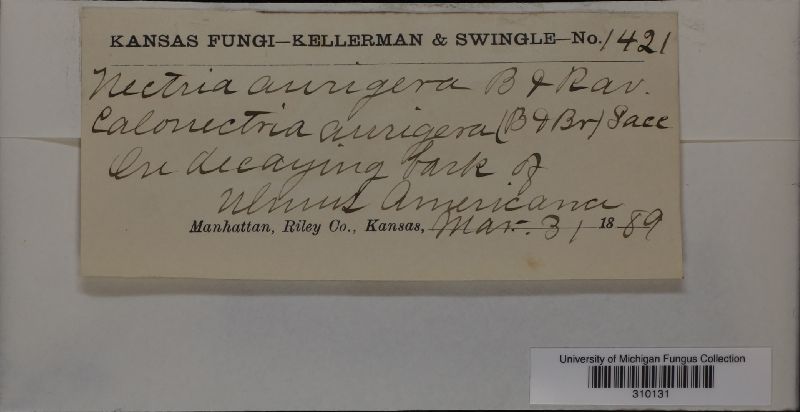 KANSAS FUNGI—KELLERMAN & SWINGLE—No. 1421
Nectria aurigera B & Rav.
Calonectria aurigera (B & Br) Sacc
On decaying bark of
Ulmus Americana
Manhattan, Riley Co., Kansas, Mar. 31 1889
University of Michigan Fungus Collection
310131